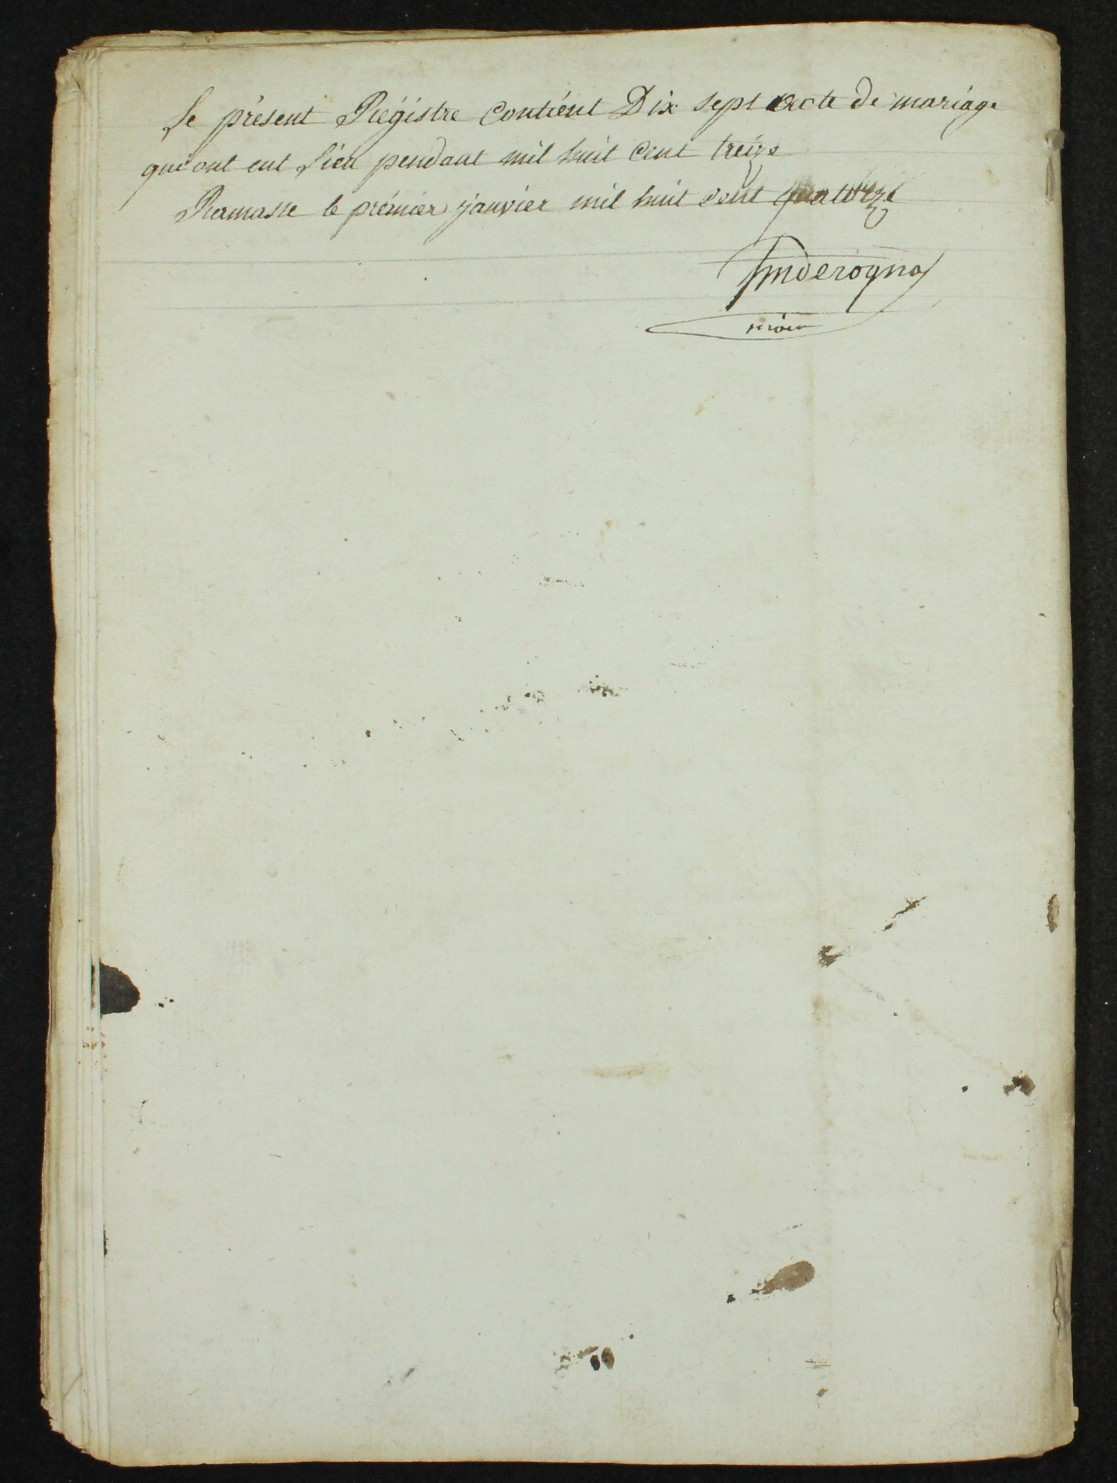 Le présent Régistre contiént Dix sept acte de mariage
qui ont eut Lieu pendant mil huit cent treize
Ramasse le prémier janvier mil huit cent quatorze